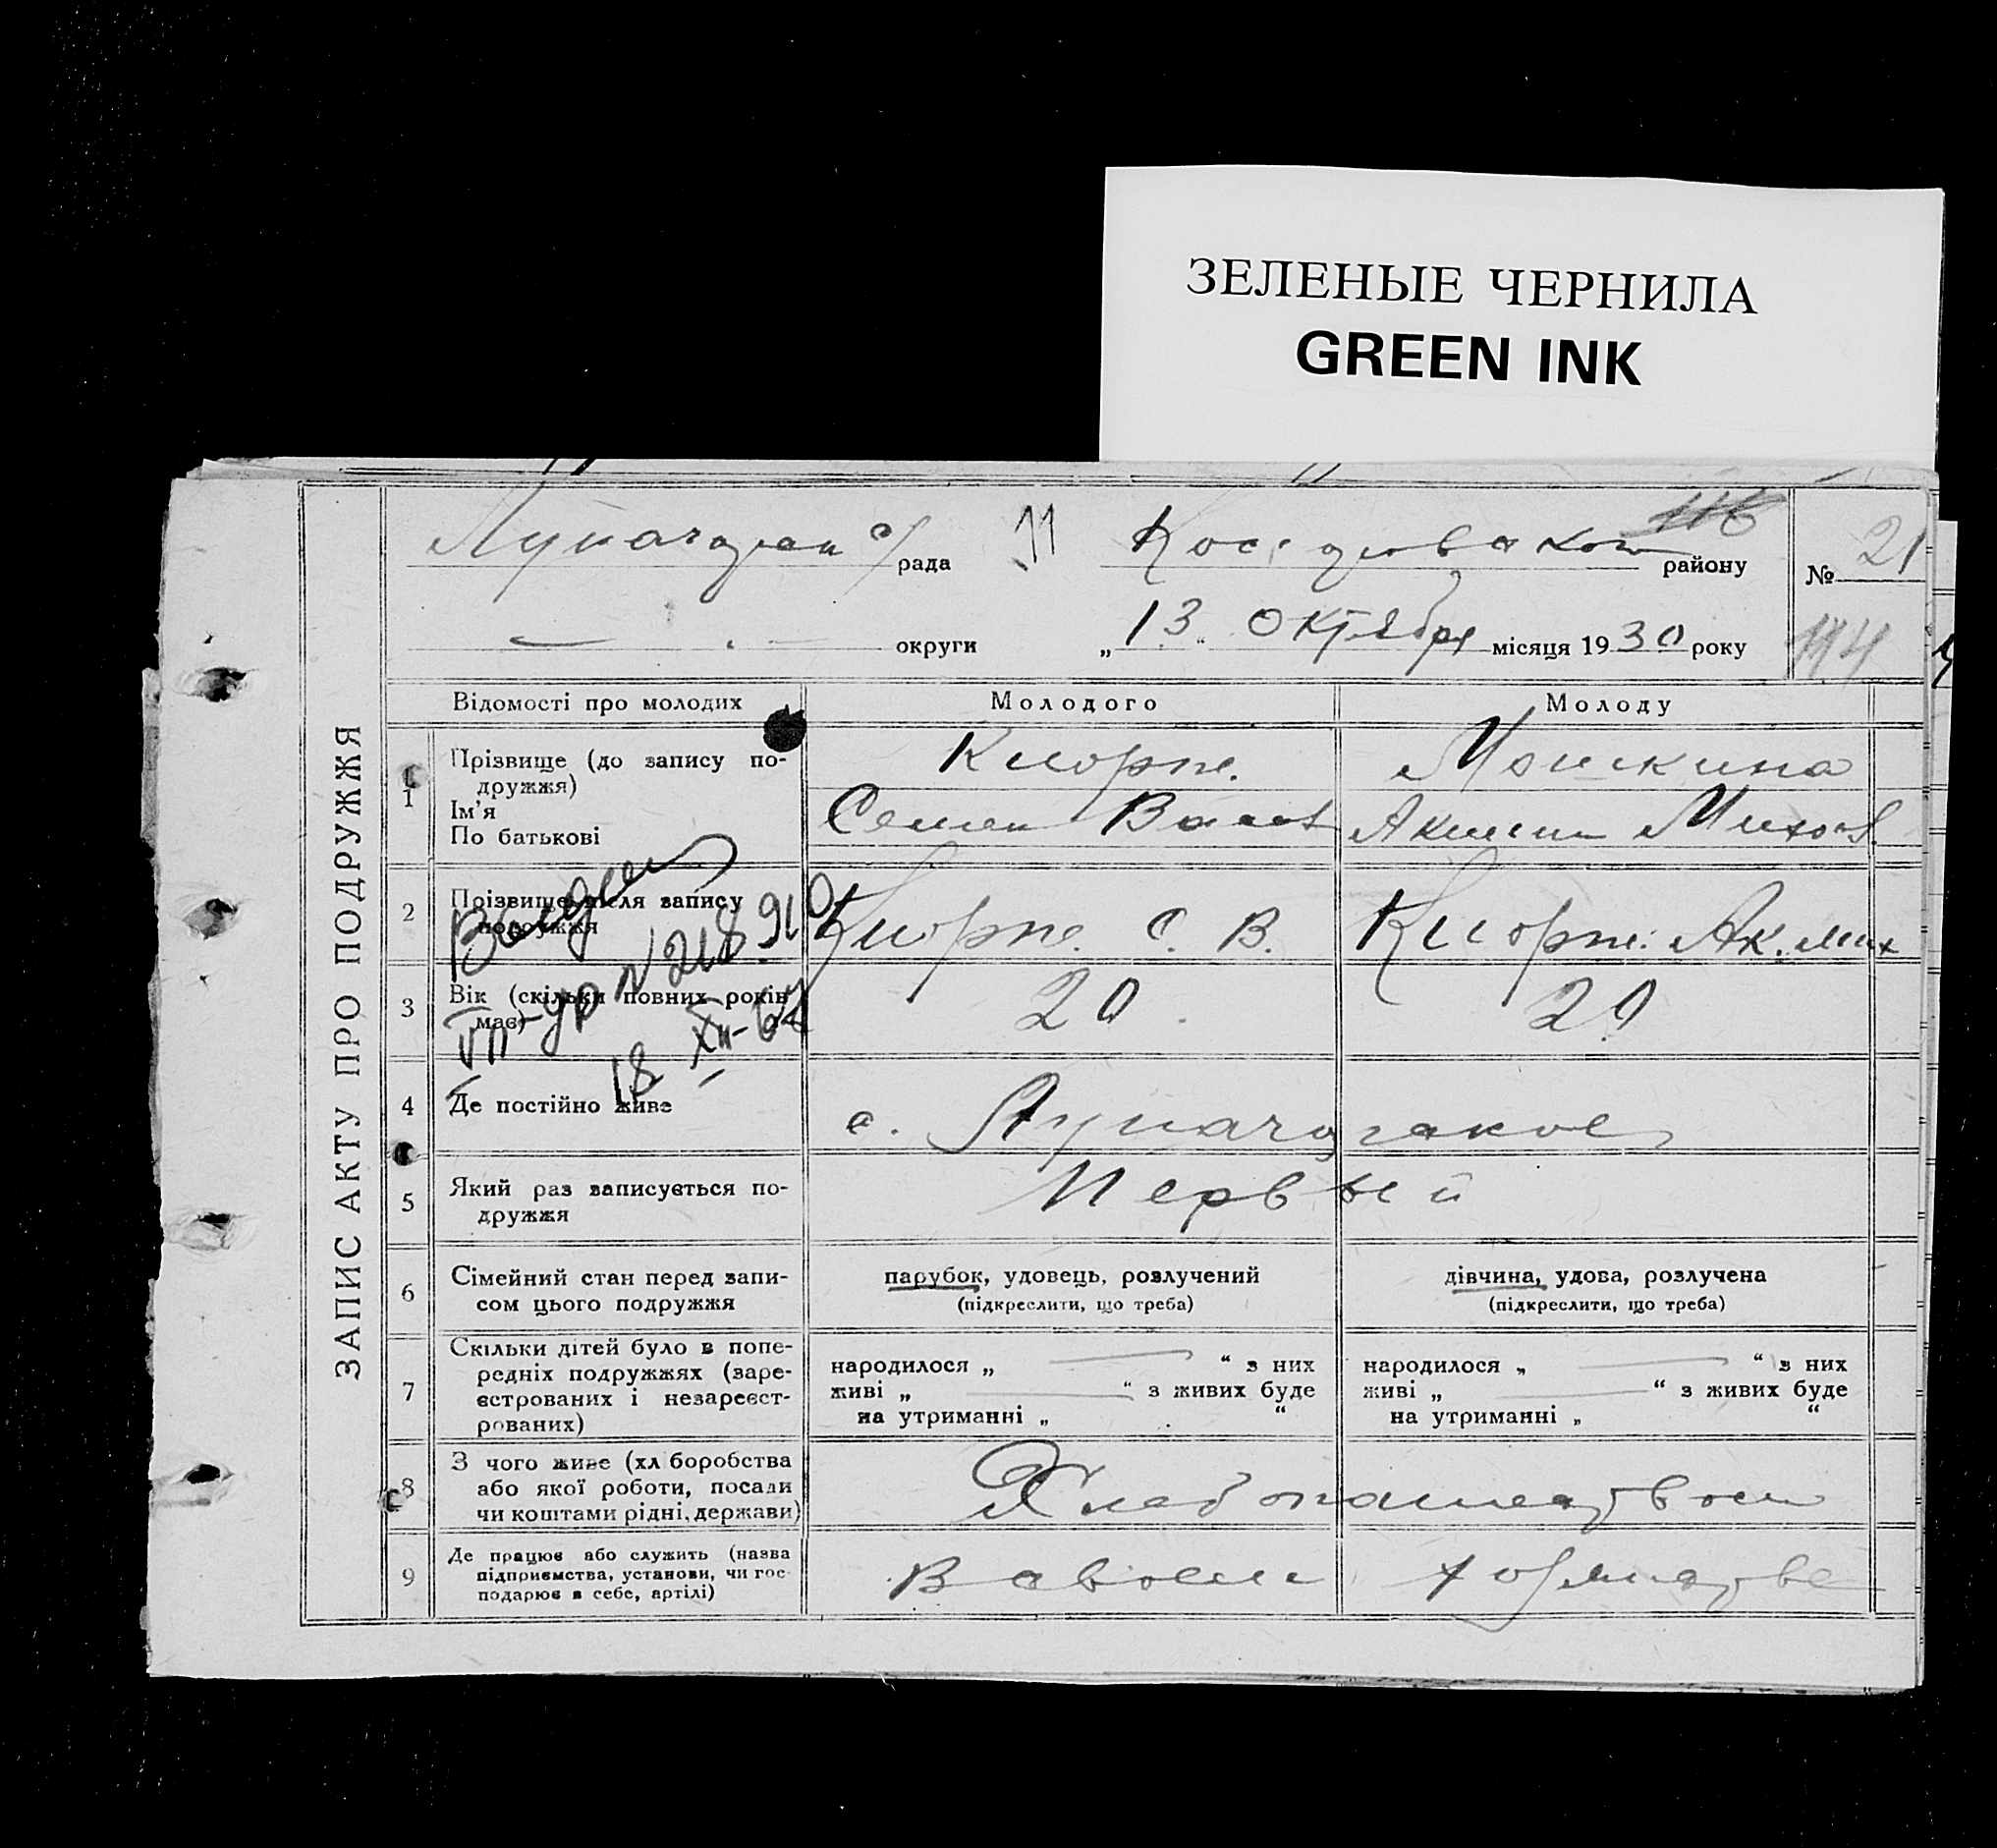 ЗЕЛЕНЫЕ ЧЕРНИЛА
GREEN INK
рада
11
району
116
№ 21
округи
„13" октября місяця 1930 року
194
ЗАПИС АКТУ ПРО ПОДРУЖЖЯ
Відомості про молодих
Молодого
Молоду
1
Прізвище (до запису по-
дружжя)
Ім'я
По батькові
Киорпе.
Мошкина
Семен
2
Прізвище після запису
подружжя
Киорпе. С. В.
Киорпе. Ак. Мих
3
Вік (скільки повних років
має)
20
20
№ 218910
18 XII-64
4
Де постійно живе
с.
5
Який раз записується по-
дружжя
Первый
6
Сімейний стан перед запи-
сом цього подружжя
парубок, удовець, розлучений
(підкреслити, що треба)
дівчина, удова, розлучена
(підкреслити, що треба)
7
Скільки дітей було в попе-
редніх подружжях (заре-
єстрованих і незареєст-
рованих)
народилося „ — “ з них
живі „ — “ з живих буде
на утриманні „ “
народилося „ — “ з них
живі „ — “ з живих буде
на утриманні „ “
8
З чого живе (хл боробства
або якої роботи, посади
чи коштами рідні, держави)
Хлебопашеством
9
Де працює або служить (назва
підприємства, установи, чи гос-
подарює в себе, артілі)
В своем